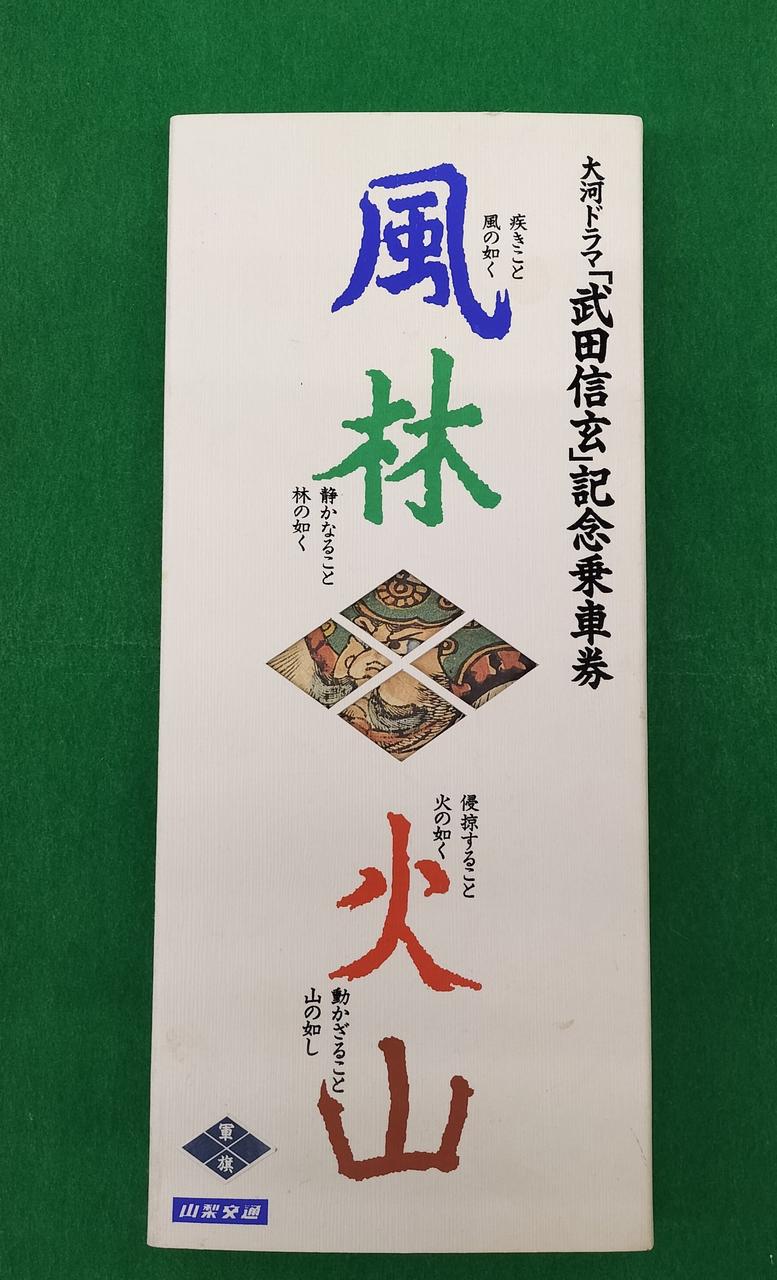 大河ドラマ「武田信玄」記念乗車券
風
疾きこと
風の如く
林
静かなること
林の如く
侵掠すること
火の如く
火
動かざること
山の如し
山
軍
旗
山梨交通